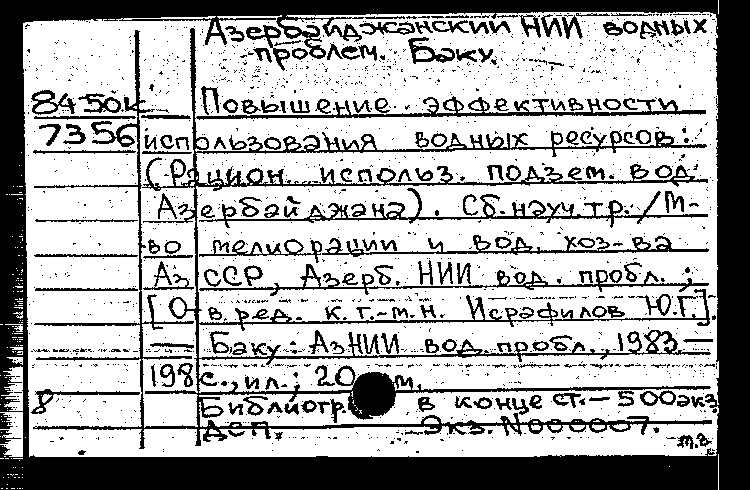 Азербайджанский НИИ водных
проблем. Баку.
8450к Повышение эффективности
7356 использования водных ресурсов:
(Рацион. использ. подзем. вод
Азербайджана). Сб. науч. тр. / М-
во мелиорации и вод. хоз-ва
Аз ССР, Азерб. НИИ вод. пробл. ;
[Отв. ред. к. г.-м. н. Исрафилов Ю.Г.].
— Баку : АзНИИ вод. пробл., 1983 —
198 с., ил. ; 20 см.
8 Библиогр. в конце ст. — 500 экз
ДСП. Экз. N 000007.